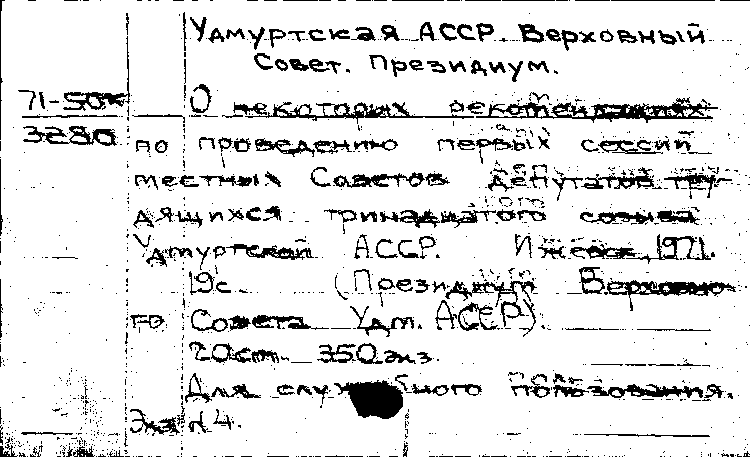 Удмуртская АССР. Верховный
Совет. Президиум.
71-50к
О некоторых рекомендациях
3280
по проведению первых сессий
местных Советов депутатов тру-
дящихся тринадцатого созыва
Удмуртской АССР. Ижевск, 1971.
19с. (Президиум Верховно-
го Совета Удм. АССР).
20см. 350 экз.
Для служебного пользования.
Экз N4.